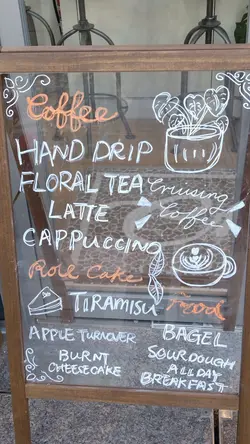 Coffee
HAND DRIP
FLORAL TEA
LATTE
CAPPUCCINO
Cruising
Coffee
Role Cake
TIRAMISU
APPLE TURNOVER
BURNT
CHEESECAKE
Food
BAGEL
SOURDOUGH
ALL DAY
BREAKFAST